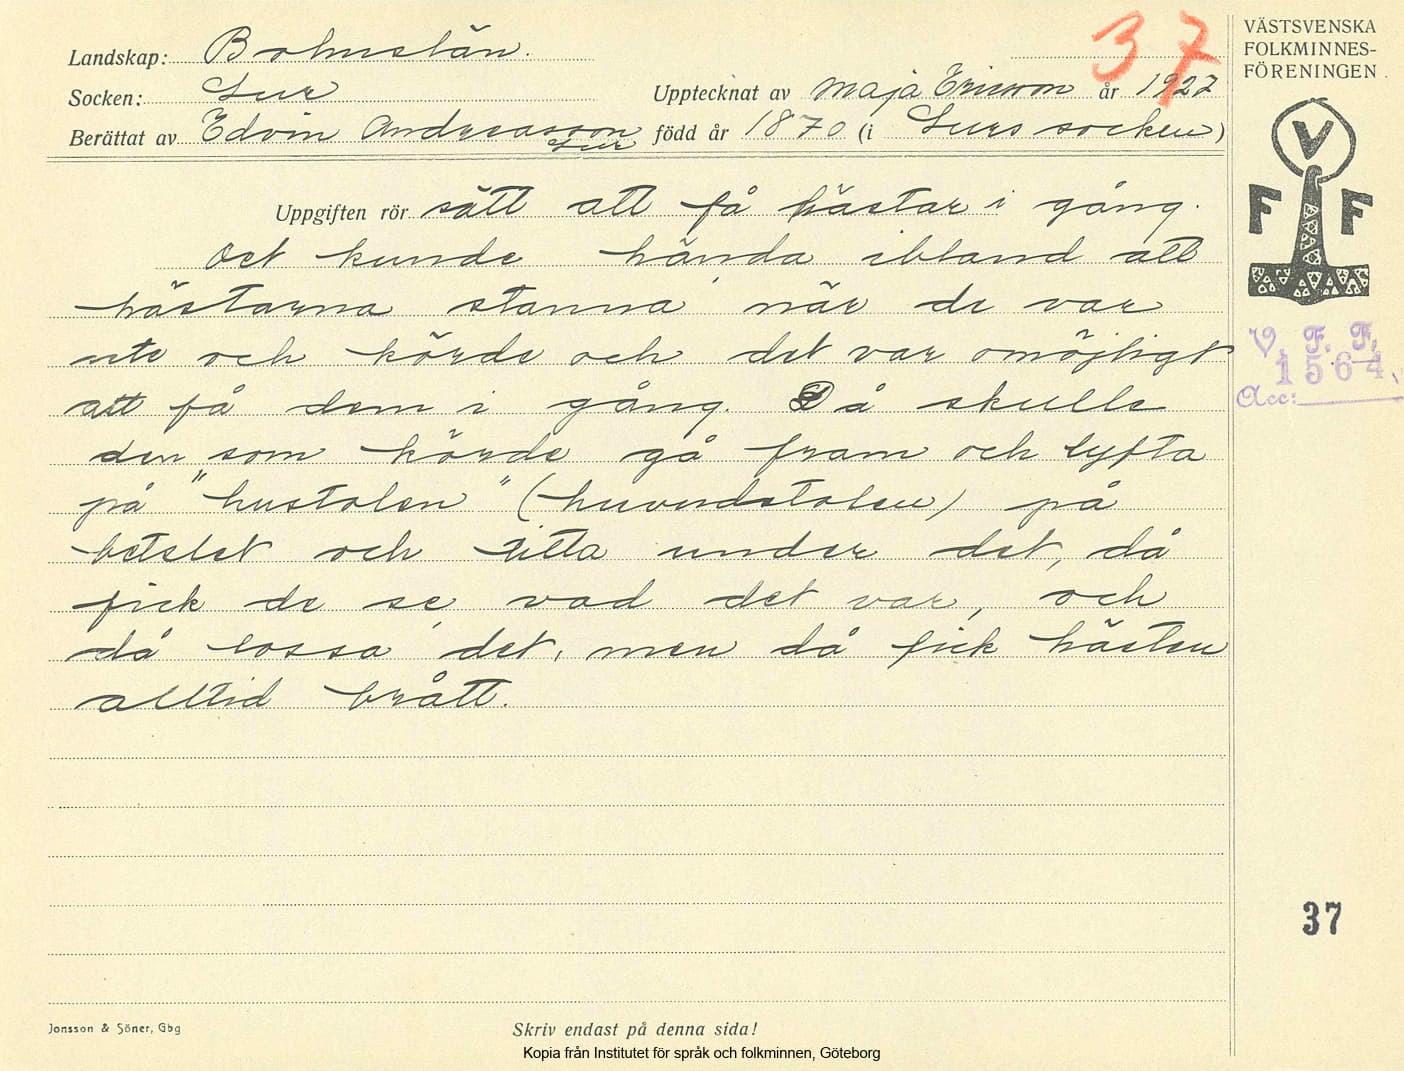 37
VÄSTSVENSKA
FOLKMINNES-
FÖRENINGEN.
Landskap: Bohuslän.
Socken: Lur
Upptecknat av Maja Ericson år 1927
Berättat av Edvin Andreasson född år 1870 (i Lurs socken)
Lur
V
F F
Uppgiften rör sätt att få hästar i gång.
Det kunde hända ibland att
hästarna stanna när de var
ute och körde och det var omöjligt
att få dem i gång. Då skulle
den som körde gå fram och lyfta
på "hustolen" (huvudstolen) på
betslet och titta under det, då
fick de se vad det var, och
då lossa det, men då fick hästen
alltid brått.
V. F. F.
1564
Acc:
37
Jonsson & Söner, Gbg
Skriv endast på denna sida!
Kopia från Institutet för språk och folkminnen, Göteborg